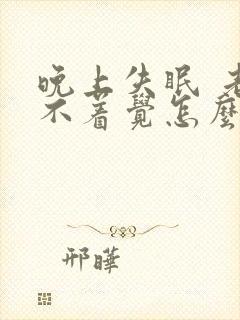 晚上失眠 老
不着覺怎麼
邢曄